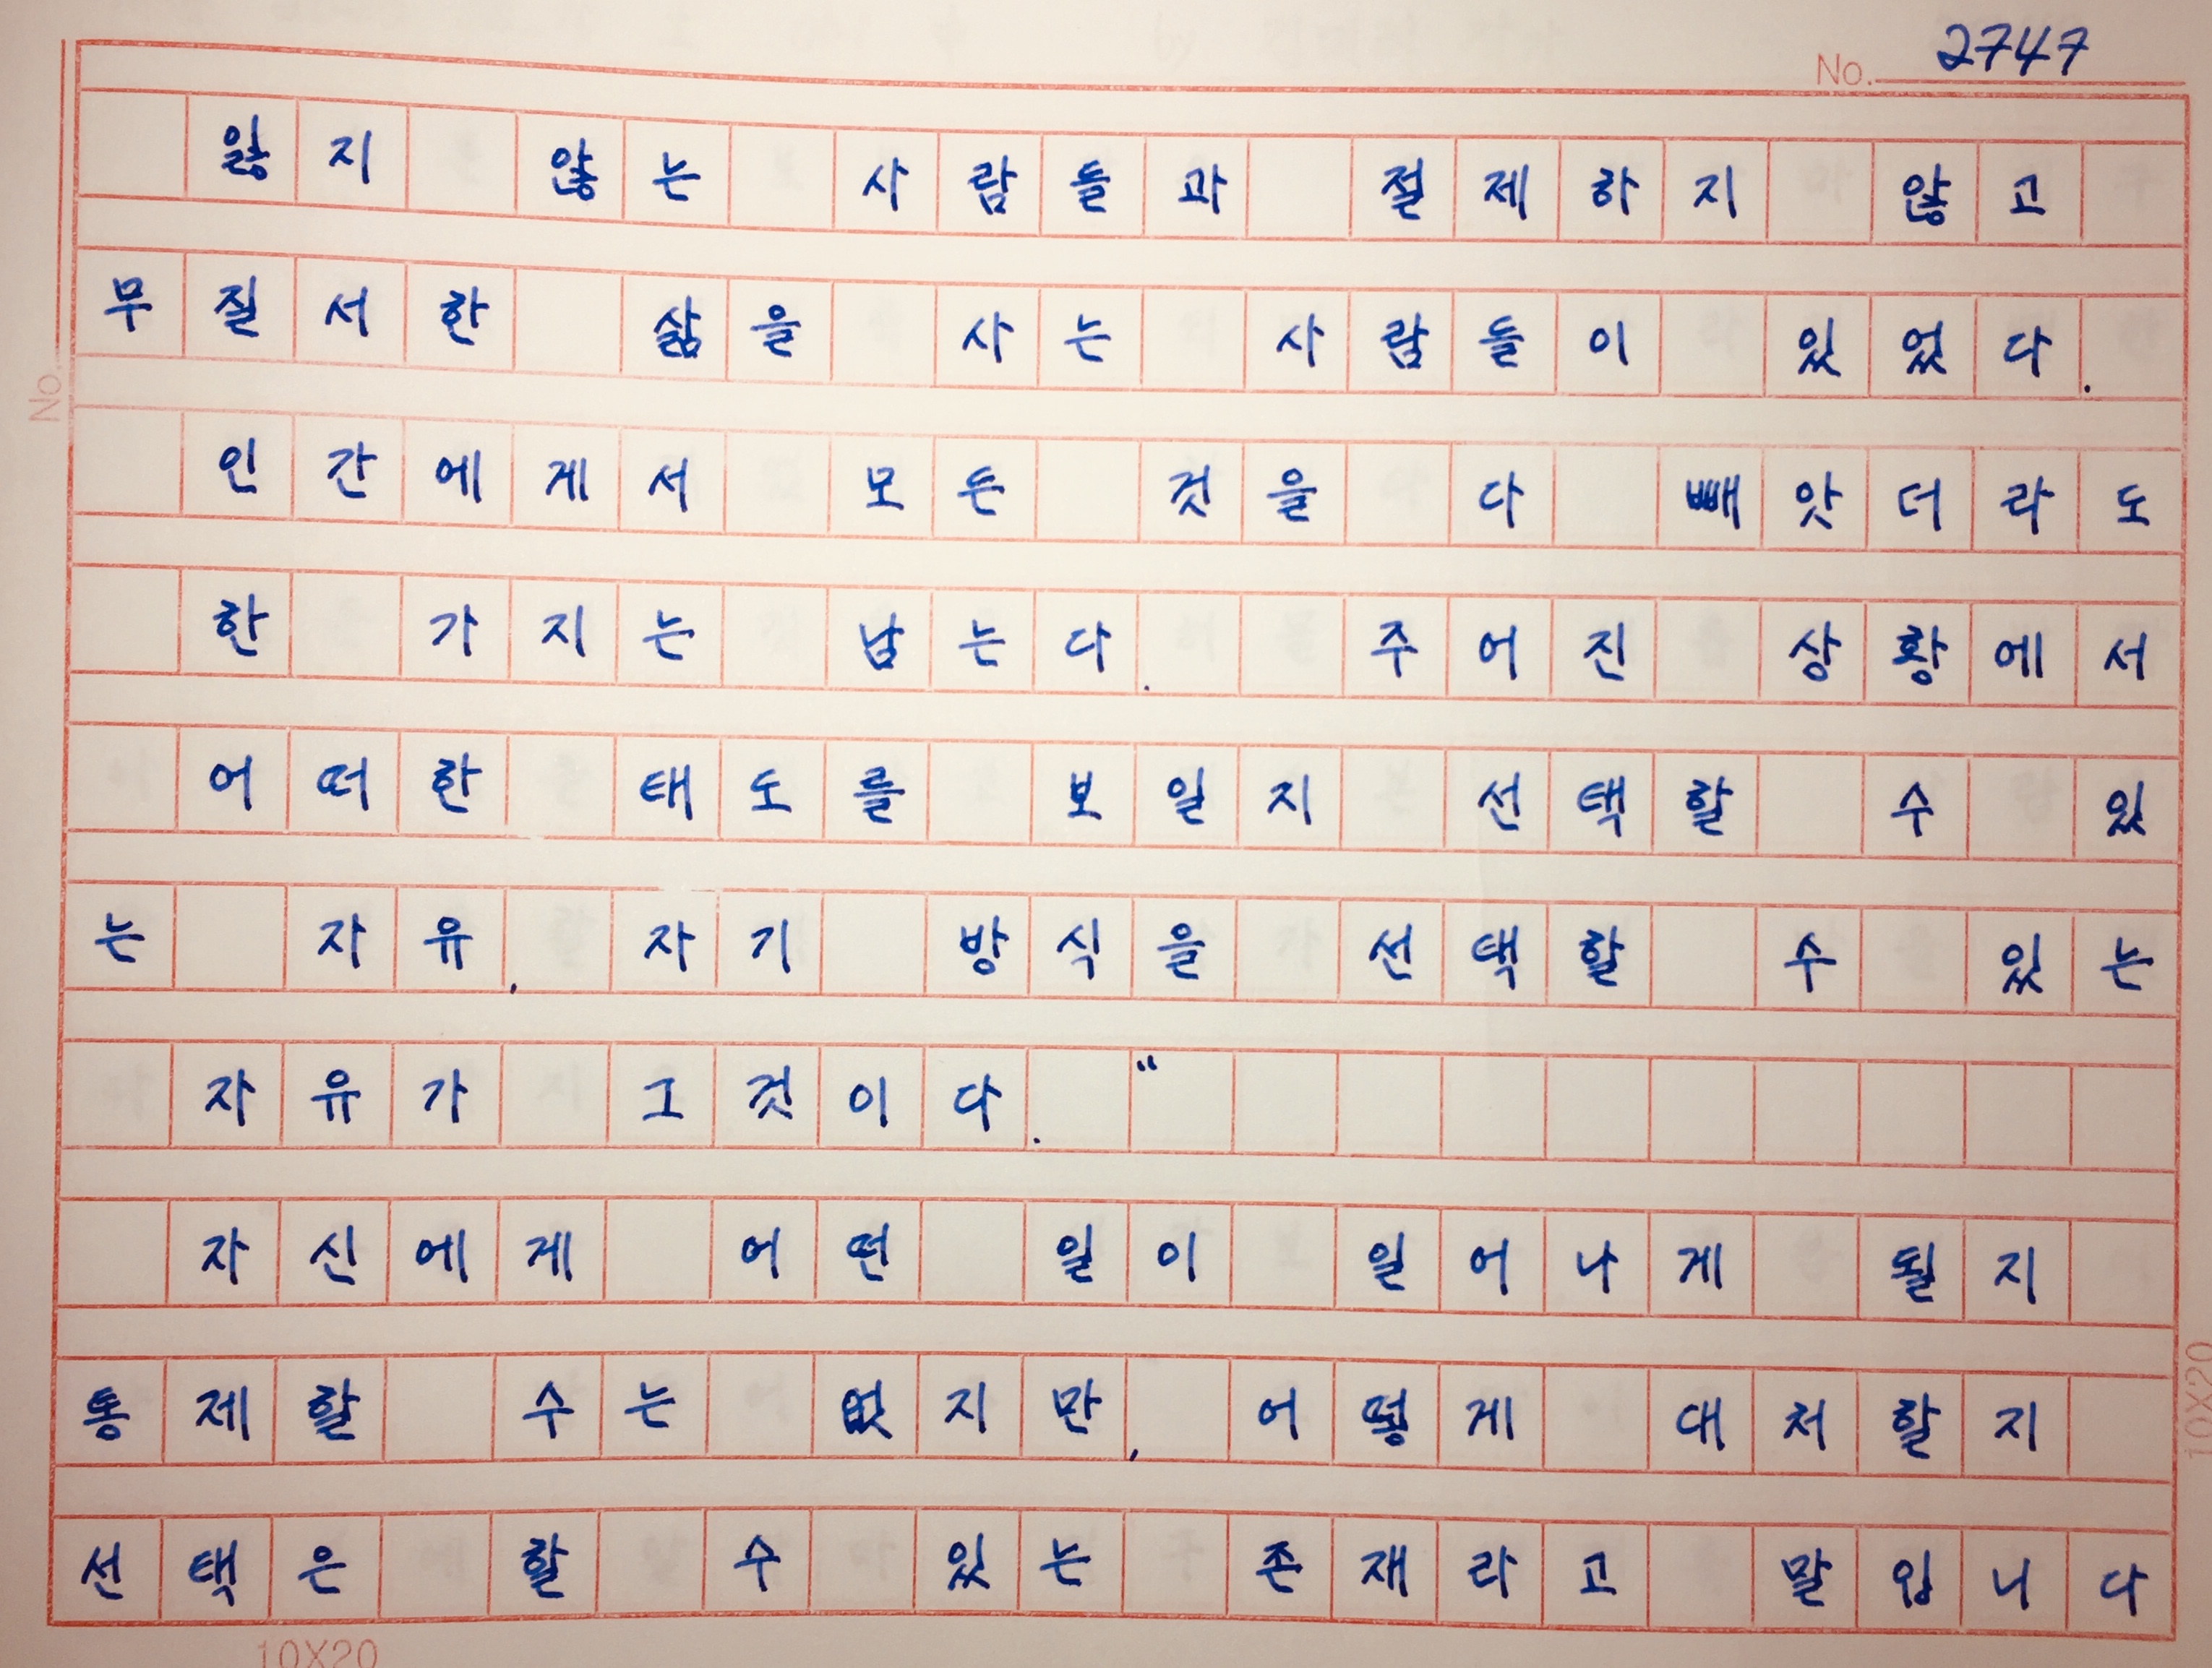 No. 2747
잃지 않는 사람들과 절제하지 않고
무질서한 삶을 사는 사람들이 있었다.
인간에게서 모든 것을 다 빼앗더라도
한 가지는 남는다. 주어진 상황에서
어떠한 태도를 보일지 선택할 수 있
는 자유. 자기 방식을 선택할 수 있는
자유가 그것이다. “
자신에게 어떤 일이 일어나게 될지
통제할 수는 없지만, 어떻게 대처할지
선택은 할 수 있는 존재라고 말입니다
No.
10X20
10X20